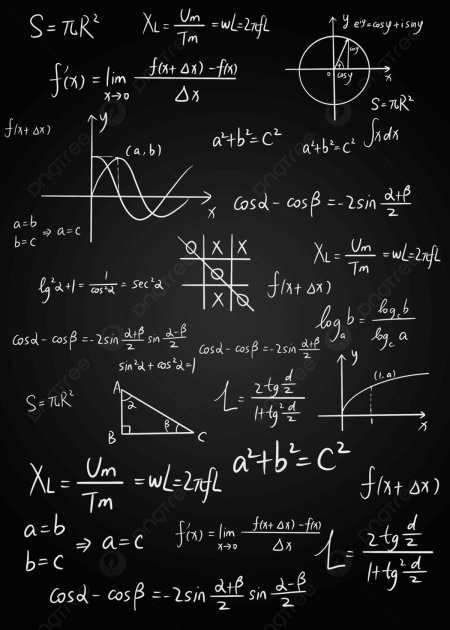 S = πR²
X_L = Um/Tm = wL = 2πfL
y
e^iy = cosy + isiny
siny
o
cosy
x
f'(x) = lim x→0 f(x+Δx) - f(x) / Δx
S = πR²
f(x+Δx)
y
(a, b)
x
a²+b² = c²
a²+b² = c²
∫xdx
cosα - cosβ = -2sin α+β/2
a=b
b=c ⇒ a=c
O X X
O
X O
X_L = Um/Tm = wL = 2πfL
tg²α+1 = 1/cos²α = sec²α
f(x+Δx)
log_a b = log_c b / log_c a
cosα - cosβ = -2sin α+β/2 sin α-β/2
cosα - cosβ = -2sin α+β/2
sin²α + cos²α = 1
y
(1, a)
1
x
S = πR²
A
α
B
β
C
L = 2tg d/2 / 1+tg² d/2
a²+b² = c²
X_L = Um/Tm = wL = 2πfL
f(x+Δx)
a=b
b=c ⇒ a=c
f'(x) = lim x→0 f(x+Δx) - f(x) / Δx
L = 2tg d/2 / 1+tg² d/2
cosα - cosβ = -2sin α+β/2 sin α-β/2